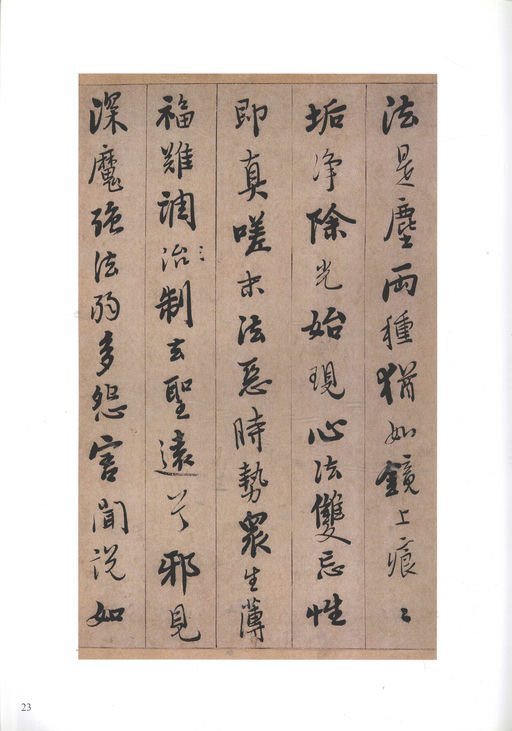 法是塵兩種猶如鏡上痕〻
垢淨除光始現心法雙忘性
即真嗟末法惡時勢衆生薄
福難調治制去聖遠兮邪見
深魔強法弱多怨害聞說如
23